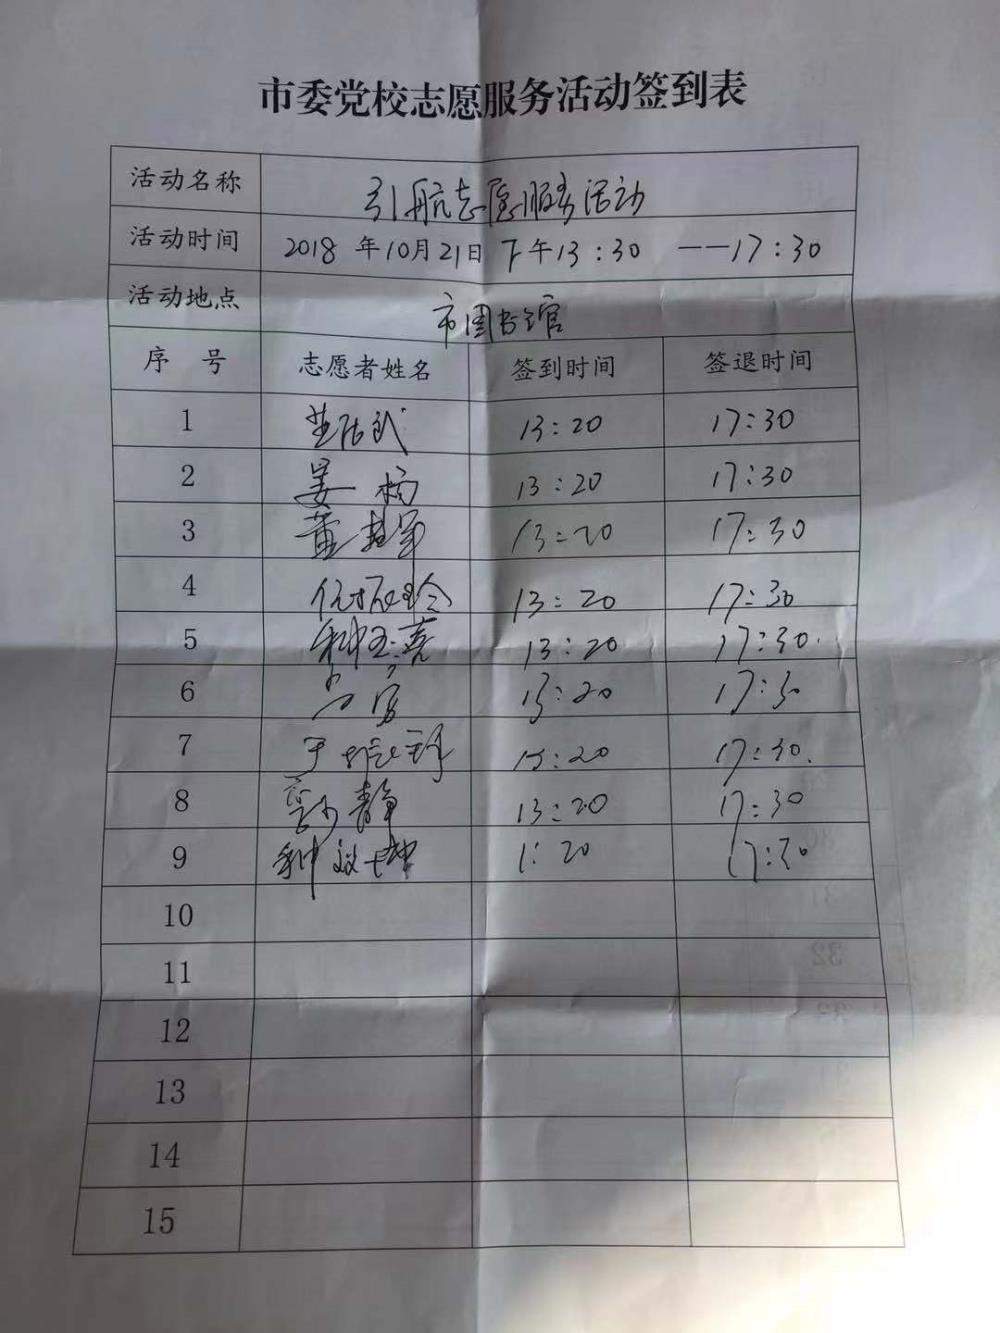 市委党校志愿服务活动签到表
活动名称 引航志愿服务活动
活动时间 2018 年10月21日 下午13:30 ——17:30
活动地点 市图书馆
序 号 志愿者姓名 签到时间 签退时间
1 13:20 17:30
2 姜杨 13:20 17:30
3 13:20 17:30
4 13:20 17:30
5 13:20 17:30
6 13:20 17:30
7 13:20 17:30
8 静 13:20 17:30
9 1:20 17:30
10
11
12
13
14
15
32